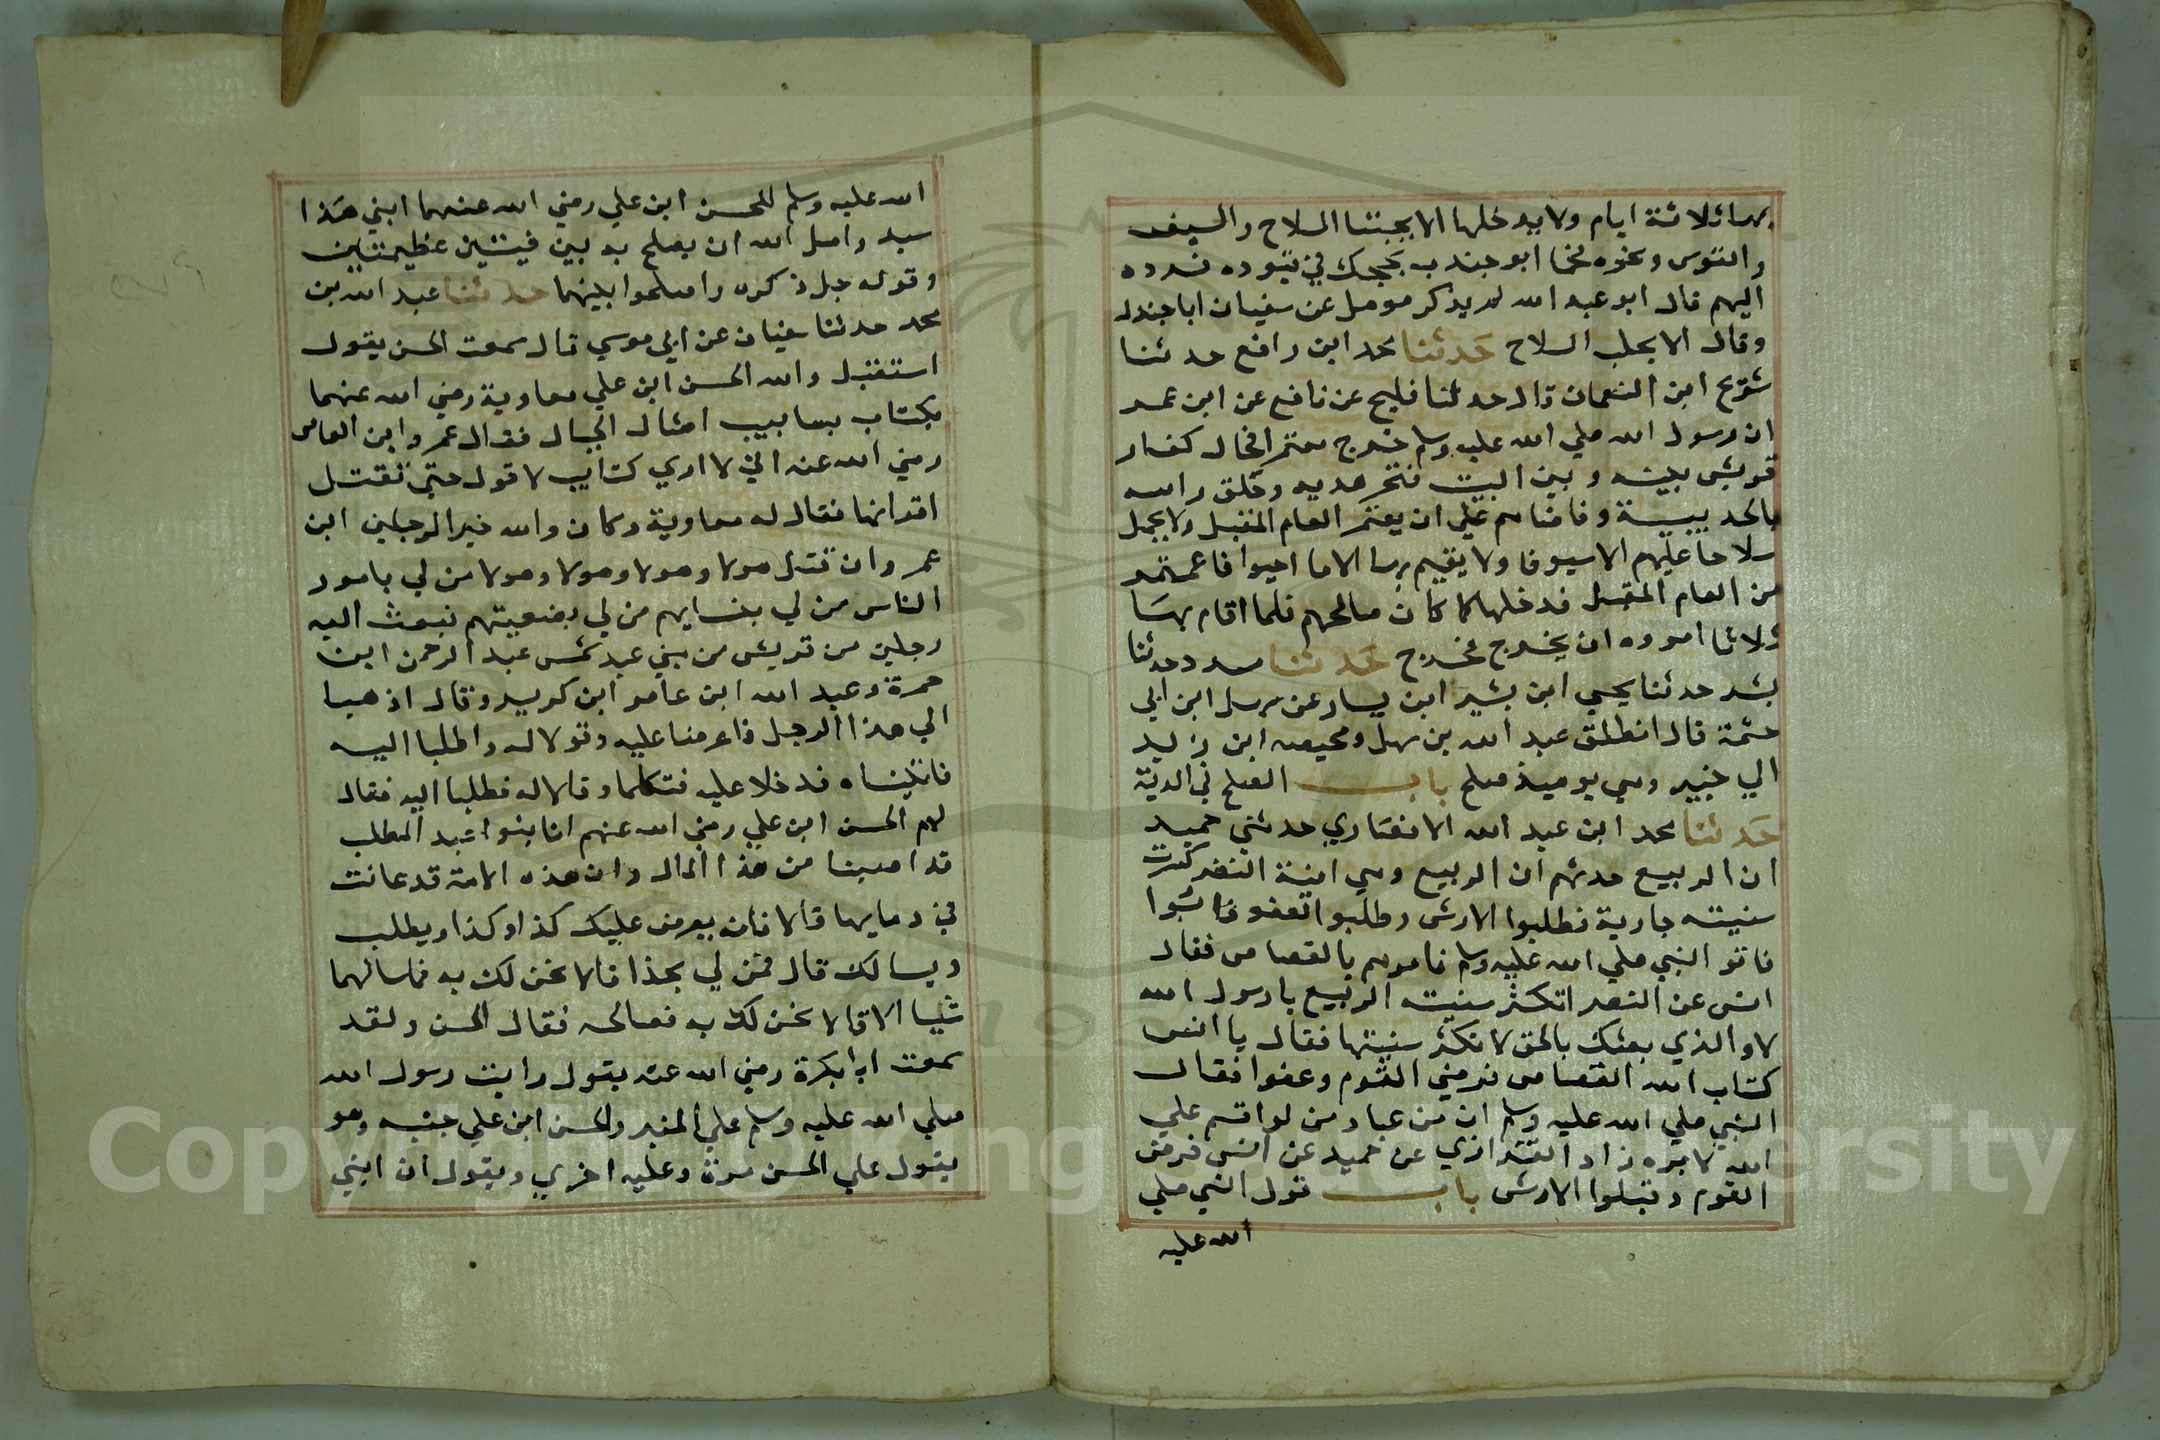 بها ثلاثة ايام ولا يدخلها الا بجبتنا السلاح والسيف
والقوس ونحوه فجا ابو جندب بحجك في قيوده فرده
اليهم قال ابو عبد الله لم يذكر مومل عن سفيان ابا جندل
وقال الا بجلب السلاح حدثنا محمد ابن رافع حدثنا
شريح ابن النعمان قال حدثنا فليح عن نافع عن ابن عمر
ان رسول الله صلي الله عليه وسلم خرج معتمرا فحال كفار
قريش بينه وبين البيت فنحر هديه وحلق راسه
بالحديبية وقاضاهم علي ان يعتمر العام المقبل ولا يحمل
سلاحا عليهم الا سيوفا ولا يقيم بها الا ما احبوا فاعتمر
من العام المقبل فدخلها كما كان صالحهم فلما اقام بها
ثلاثا امروه ان يخرج فخرج حدثنا مسدد حدثنا
بشر حدثنا يحيي ابن بشير ابن يسار عن سهل ابن ابي
حثمة قال انطلق عبد الله بن سهل ومحيصه ابن زايد
الي خيبر وهي يوميذ صلح باب الصلح في الدية
حدثنا محمد ابن عبد الله الانصاري حدثني حميد
ان الربيع حدثهم ان الربيع وهي ابنة النضر كسرت
سنيته جارية فطلبوا الارش وطلبوا العفو فابوا
فاتو النبي صلي الله عليه وسلم فامرهم بالقصاص فقال
انس عن النضر اتكسر سنيته الربيع يا رسول الله
لا والذي بعثك بالحق لا تكسر سنيتها فقال يا انس
كتاب الله القصاص فرضي القوم وعفوا فقال
النبي صلي الله عليه وسلم ان من عباد من لو اقسم علي
الله لابره زاد الفزازي عن حميد عن انس فرضي
القوم وقبلوا الارش باب قول النبي صلي
الله عليه
الله عليه وسلم للحسن ابن علي رضي الله عنهما ابني هذا
سيد واصل الله ان يصلح به بين فيتين عظيمتين
وقوله جل ذكره واصلحوا بينهما حدثنا عبد الله بن
محمد حدثنا سفيان عن ابي موسي قال سمعت الحسن يقول
استقبل والله الحسن ابن علي معاوية رضي الله عنهما
بكتاب بسابيب امثال الجبال فقال عمر وابن العاص
رضي الله عنه اني لا اري كتايب لا قول حتي تقتل
اقرانها فقال له معاوية وكان والله خير الرجلين ابن
عمر وان قتل هولا وهولا وهولا وهولا من لي بامور
الناس من لي بنسايهم من لي بضعيتهم فبعث اليه
رجلين من قريش من بني عبد شمس عبد الرحمن ابن
حمرة وعبد الله ابن عامر ابن كريد وقال اذهبا
الي هذا الرجل فاعرضا عليه وقولا له واطلبا اليه
فاتيناه فدخلا عليه فتكلما وقالا له فطلبا اليه فقال
لهم الحسن ابن علي رضي الله عنهم انا بنوا عبد المطلب
قد اصبنا من هذا المال وان هذه الامة قد عانت
في دمايها قالا فانه يعرض عليك كذا وكذا ويطلب
ويسالك قال فمن لي بهذا قالا نحن لك به فما سالهما
شيا الا قالا نحن لك به فصالحه فقال الحسن ولقد
سمعت ابا بكرة رضي الله عنه يقول رايت رسول الله
صلي الله عليه وسلم علي المنبر والحسن ابن علي جنبه وهو
يقول علي الحسن مرة وعليه اخري ويقول ان ابني